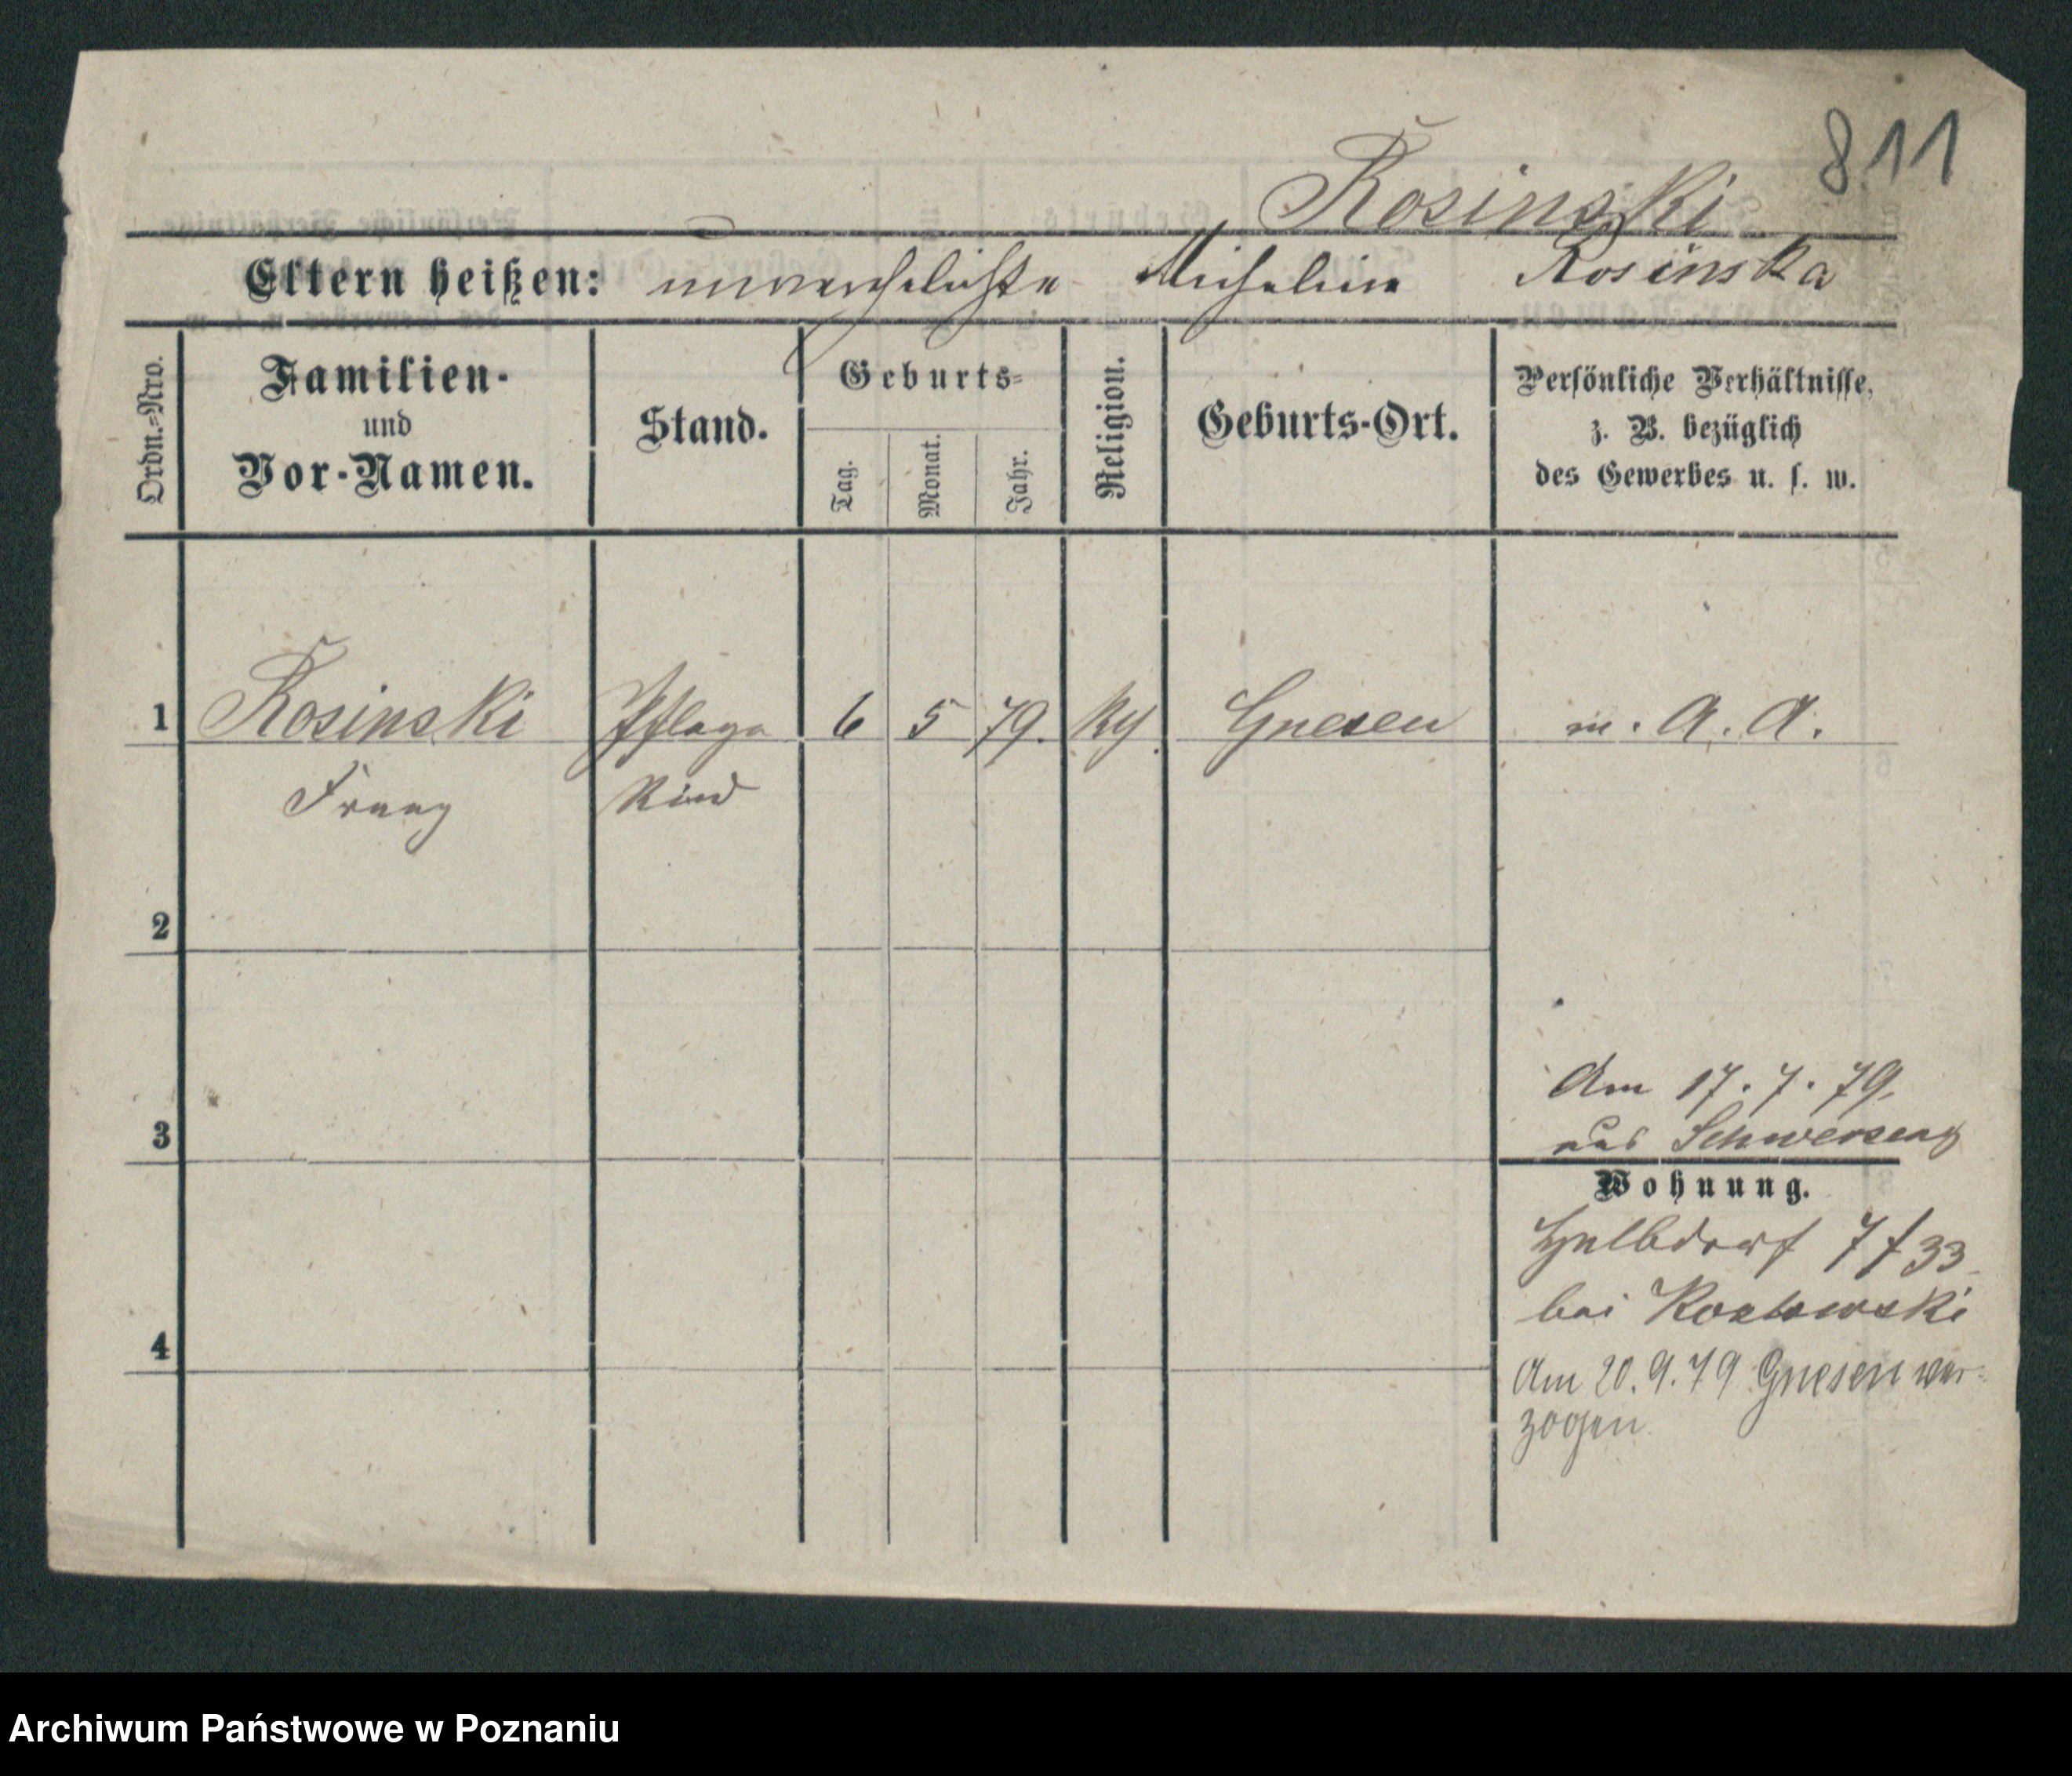 811
Rosinski
Eltern heißen: unverehelichte Michalina Rosinska
Ordn.=Nro.
Familien-
und
Vor-Namen.
Stand.
Geburts=
Tag.
Monat.
Jahr.
Religion.
Geburts-Ort.
Persönliche Verhältnisse,
z. B. bezüglich
des Gewerbes u. s. w.
1 Rosinski Pflege 6 5 79. Gnesen m. A. A.
Franz Kind
2
Am 17. 7. 79.
aus Schwersenz
3
Wohnung.
Halbdorf 7 f 33
bei
4
Am 20. 9. 79 Gnesen ver-
zogen.
Archiwum Państwowe w Poznaniu